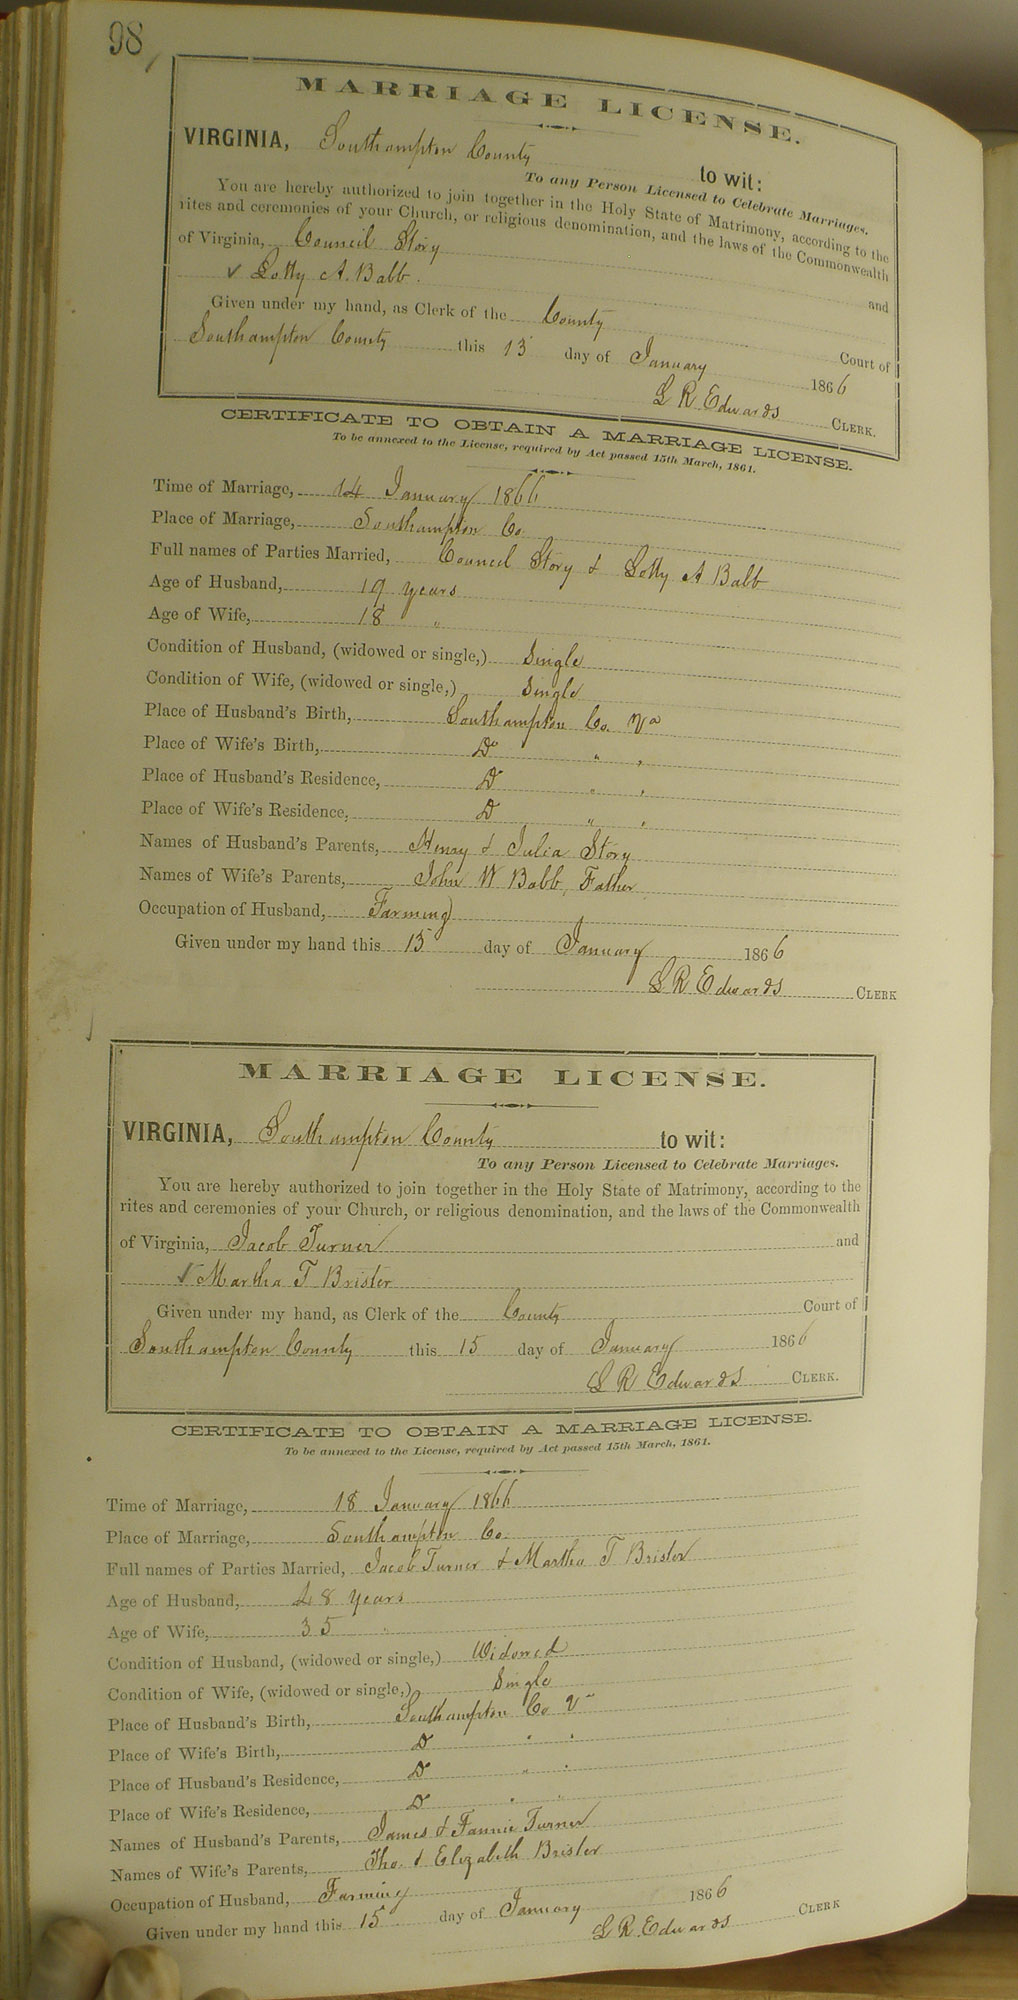 98
MARRIAGE LICENSE.
VIRGINIA, Southampton County to wit:
To any Person Licensed to Celebrate Marriages.
You are hereby authorized to join together in the Holy State of Matrimony, according to the
rites and ceremonies of your Church, or religious denomination, and the laws of the Commonwealth
of Virginia, Council Story and
✓ Lotty A. Babb.
Given under my hand, as Clerk of the County Court of
Southampton County this 13 day of January 1866
L R Edwards CLERK.
CERTIFICATE TO OBTAIN A MARRIAGE LICENSE.
To be annexed to the License, required by Act passed 15th March, 1861.
Time of Marriage, 14 January 1866
Place of Marriage, Southampton Co.
Full names of Parties Married, Council Story & Lotty A Babb
Age of Husband, 19 years
Age of Wife, 18 "
Condition of Husband, (widowed or single,) Single
Condition of Wife, (widowed or single,) Single
Place of Husband's Birth, Southampton Co. Va
Place of Wife's Birth, Do " "
Place of Husband's Residence, Do " "
Place of Wife's Residence, Do " "
Names of Husband's Parents, Henry & Julia Story
Names of Wife's Parents, John W Babb, Father
Occupation of Husband, Farming
Given under my hand this 13 day of January 1866
L R Edwards CLERK
MARRIAGE LICENSE.
VIRGINIA, Southampton County to wit:
To any Person Licensed to Celebrate Marriages.
You are hereby authorized to join together in the Holy State of Matrimony, according to the
rites and ceremonies of your Church, or religious denomination, and the laws of the Commonwealth
of Virginia, Jacob Turner and
✓ Martha T Brister
Given under my hand, as Clerk of the County Court of
Southampton County this 15 day of January 1866
L R Edwards CLERK.
CERTIFICATE TO OBTAIN A MARRIAGE LICENSE.
To be annexed to the License, required by Act passed 15th March, 1861.
Time of Marriage, 18 January 1866
Place of Marriage, Southampton Co.
Full names of Parties Married, Jacob Turner & Martha T Brister
Age of Husband, 48 years
Age of Wife, 35 "
Condition of Husband, (widowed or single,) Widowed
Condition of Wife, (widowed or single,) Single
Place of Husband's Birth, Southampton Co Va
Place of Wife's Birth, Do " "
Place of Husband's Residence, Do " "
Place of Wife's Residence, Do " "
Names of Husband's Parents, James & Fannie Turner
Names of Wife's Parents, Tho. & Elizabeth Brister
Occupation of Husband, Farming
Given under my hand this 15 day of January 1866
L R Edwards CLERK